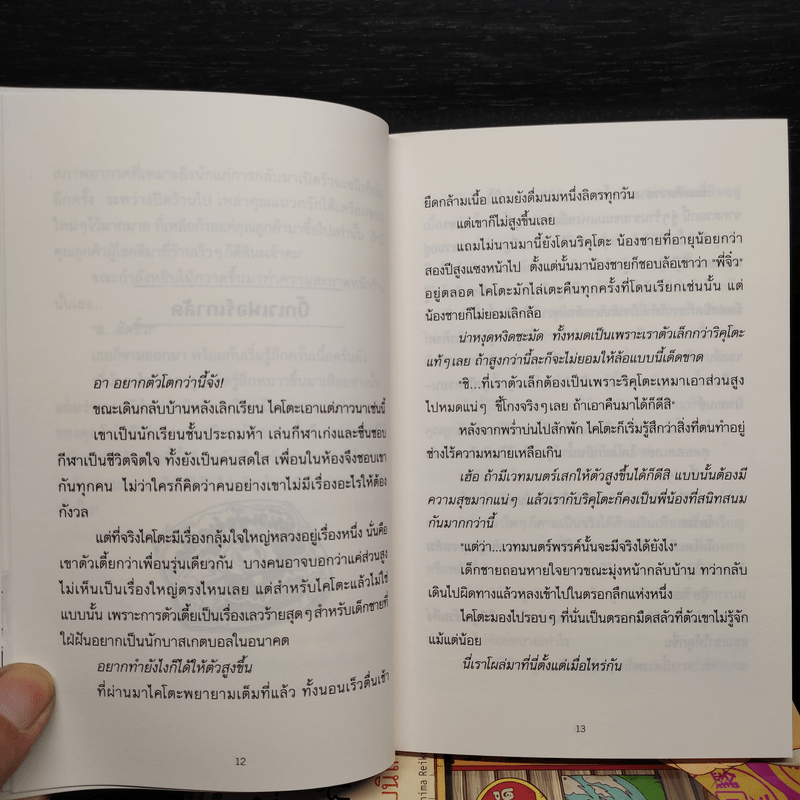 อา อยากตัวโตกว่านี้จัง!
ขณะเดินกลับบ้านหลังเลิกเรียน ไคโตะเอาแต่ภาวนาเช่นนี้
เขาเป็นนักเรียนชั้นประถมห้า เล่นกีฬาเก่งและชื่นชอบ
กีฬาเป็นชีวิตจิตใจ ทั้งยังเป็นคนสดใส เพื่อนในห้องจึงชอบเขา
กันทุกคน ไม่ว่าใครก็คิดว่าคนอย่างเขาไม่มีเรื่องอะไรให้ต้อง
กังวล
แต่ที่จริงไคโตะมีเรื่องกลุ้มใจใหญ่หลวงอยู่เรื่องหนึ่ง นั่นคือ
เขาตัวเตี้ยกว่าเพื่อนรุ่นเดียวกัน บางคนอาจบอกว่าแค่ส่วนสูง
ไม่เห็นเป็นเรื่องใหญ่ตรงไหนเลย แต่สำหรับไคโตะแล้วไม่ใช่
แบบนั้น เพราะการตัวเตี้ยเป็นเรื่องเลวร้ายสุดๆ สำหรับเด็กชายที่
ใฝ่ฝันอยากเป็นนักบาสเกตบอลในอนาคต
อยากทำยังไงก็ได้ให้ตัวสูงขึ้น
ที่ผ่านมาไคโตะพยายามเต็มที่แล้ว ทั้งนอนเร็วตื่นเช้า
12
ยืดกล้ามเนื้อ แถมยังดื่มนมหนึ่งลิตรทุกวัน
แต่เขาก็ไม่สูงขึ้นเลย
แถมไม่นานมานี้ยังโดนริคุโตะ น้องชายที่อายุน้อยกว่า
สองปีสูงแซงหน้าไป ตั้งแต่นั้นมาน้องชายก็ชอบล้อเขาว่า "พี่จิ๋ว"
อยู่ตลอด ไคโตะมักไล่เตะคืนทุกครั้งที่โดนเรียกเช่นนั้น แต่
น้องชายก็ไม่ยอมเลิกล้อ
น่าหงุดหงิดชะมัด ทั้งหมดเป็นเพราะเราตัวเล็กกว่าริคุโตะ
แท้ๆ เลย ถ้าสูงกว่านี้ละก็จะไม่ยอมให้ล้อแบบนี้เด็ดขาด
"ชิ...ที่เราตัวเล็กต้องเป็นเพราะริคุโตะเหมาเอาส่วนสูง
ไปหมดแน่ๆ ขี้โกงจริงๆ เลย ถ้าเอาคืนมาได้ก็ดีสิ"
หลังจากพร่ำบ่นไปสักพัก ไคโตะก็เริ่มรู้สึกว่าสิ่งที่ตนทำอยู่
ช่างไร้ความหมายเหลือเกิน
เฮ้อ ถ้ามีเวทมนตร์เสกให้ตัวสูงขึ้นได้ก็ดีสิ แบบนั้นต้องมี
ความสุขมากแน่ๆ แล้วเรากับริคุโตะก็คงเป็นพี่น้องที่สนิทสนม
กันมากกว่านี้
"แต่ว่า...เวทมนตร์พรรค์นั้นจะมีจริงได้ยังไง"
เด็กชายถอนหายใจยาวขณะมุ่งหน้ากลับบ้าน ทว่ากลับ
เดินไปผิดทางแล้วหลงเข้าไปในตรอกลึกแห่งหนึ่ง
ไคโตะมองไปรอบๆ ที่นั่นเป็นตรอกมืดสลัวที่ตัวเขาไม่รู้จัก
แม้แต่น้อย
นี่เราโผล่มาที่นี่ตั้งแต่เมื่อไหร่กัน
13